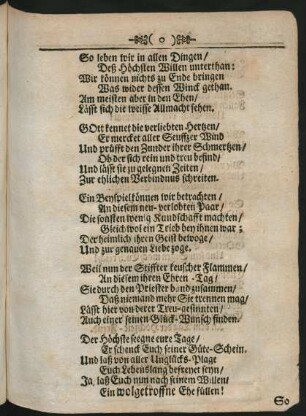 ( o )
So leben wir in allen Dingen/
Deß Höchsten Willen unterthan:
Wir können nichts zu Ende bringen
Was wider dessen Winck gethan.
Am meisten aber in den Ehen/
Lässt sich die weisse Allmacht sehen.
GOtt kennet die verliebten Hertzen/
Er mercket aller Seufftzer Wind
Und prüfft den Zunder ihrer Schmertzen/
Ob der sich rein und treu befind/
Und lässt sie zu gelegnen Zeiten/
Zur ehlichen Verbindnus schreiten.
Ein Beyspiel können wir betrachten/
An diesem neu-verlobten Paar/
Die sonsten wenig Kundschafft machten/
Gleichwol ein Trieb bey ihnen war;
Der heimlich ihren Geist bewoge/
Und zur genauen Liebe zoge.
Weil nun der Stiffter keuscher Flammen/
An diesem ihren Ehren-Tag/
Sie durch den Priester bond zusammen/
Daß niemand mehr Sie trennen mag/
Lässt hier von derer Treu-gesinnten/
Auch einer seinen Glück-Wunsch finden.
Der Höchste seegne eure Tage/
Er schenck Euch seiner Güte-Schein.
Und laß von aller Unglücks-Plage
Euch Lebenslang befreyet seyn/
Ja, laß Euch nun nach seinem Willen/
Ein wolgetroffne Ehe füllen!
So